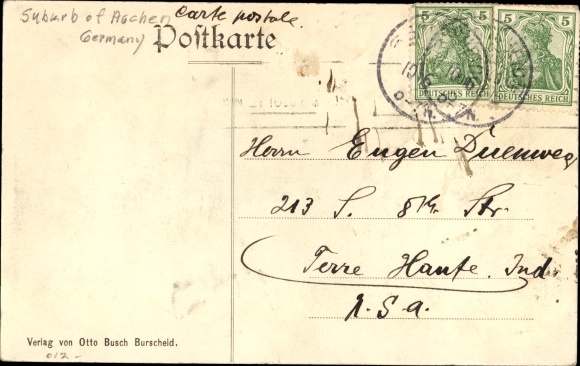 Suburb of Aachen
Germany
carte postale.
Postkarte
5 5 5
DEUTSCHES REICH DEUTSCHES REICH
Herrn Eugen Duenweg
213 S. 8th Str.
Terre Haute. Ind.
U.S.a.
Verlag von Otto Busch Burscheid.
012 -